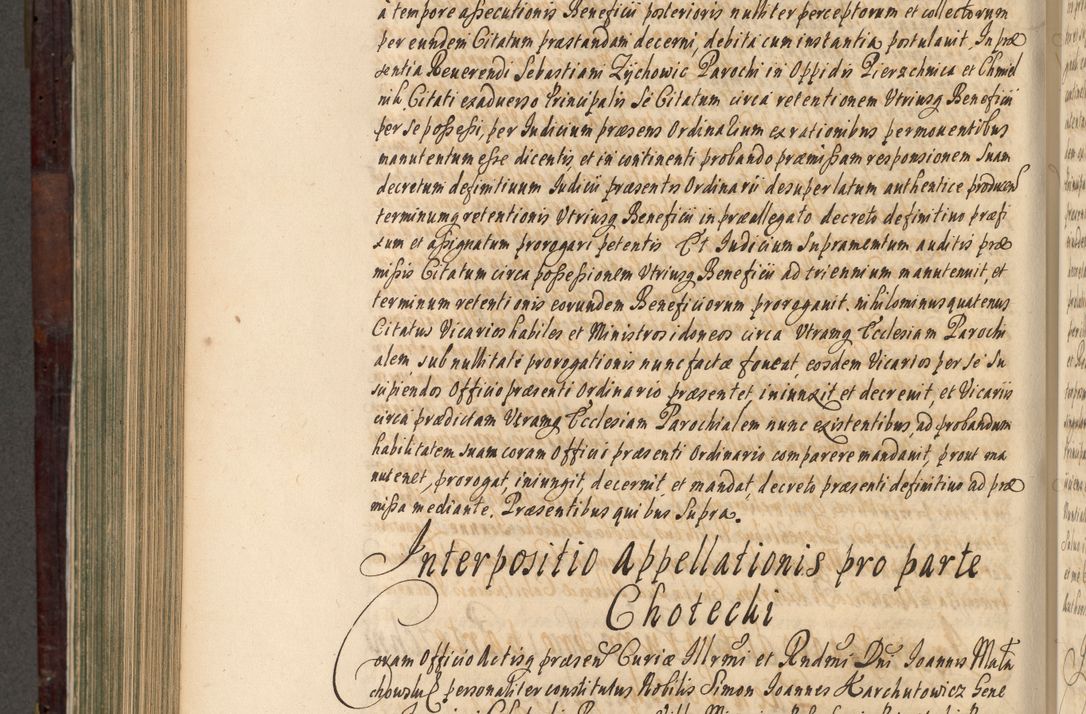 à tempore assecutionis Beneficii posterioris nulliter perceptorum et collectorum
per eundem Citatum præstandam decerni, debita cum instantia postulavit. In præ
sentia Reverendi Sebastiani Zychowic Parochi in Oppidis Pierzchnica et Chmiel
nik, Citati ex adverso Principalis se Citatum circa retentionem Utriusq Beneficii
per se possessi, per Iudicium præsens Ordinarium ex rationibus permoventibus
manutentum esse dicentis et in continenti probando præmissam responsionem suam
decretum definitivum Iudicii præsentis Ordinarii desuper latum authentice producen
terminumq retentionis Utriusq Beneficii in præallegato decreto definitivo præfi
xum et assignatum prorogari petentis Et Iudicium Supramentum auditis præ
missis Citatum circa possessionem Utriusq Beneficii ad triennium manutenuit, et
terminum retentionis eorundem Beneficiorum prorogavit. nihilominus quatenus
Citatus Vicarios habiles et Ministros idoneos circa Utramq Ecclesiam Parochi
alem, sub nullitate prorogationis nunc factæ foveat, eosdem Vicarios per se su
scipiendos Officio præsenti Ordinario præsentet, iniunxit et decrevit, et Vicariis
circa prædictam Utramq Ecclesiam Parochialem nunc existentibus, ad probandum
habilitatem suam coram Officii præsenti Ordinario comparere mandavit, prout ma
nutenet, prorogat, iniungit, decernit et mandat, decreto præsenti definitivo ad præ
missa mediante. Præsentibus quibus Supra.
Interpositio Appellationis pro parte
Chotecki
Coram Officio Actisq præsen Curiæ Illrmi et Rndmi Dni Joannis Mała
chowski personaliter constitutus Nobilis Simon Joannes Karchutowicz Gene